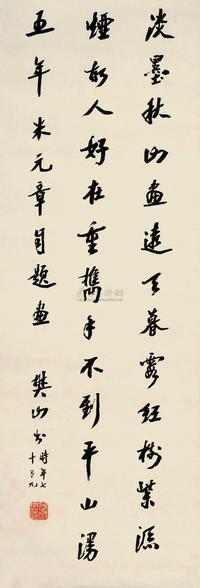 淡墨秋山畫遠天暮霞紅樹紫添
煙故人好在重攜手不到平山漫
五年米元章自題畫
樊山書
時年七
十有九